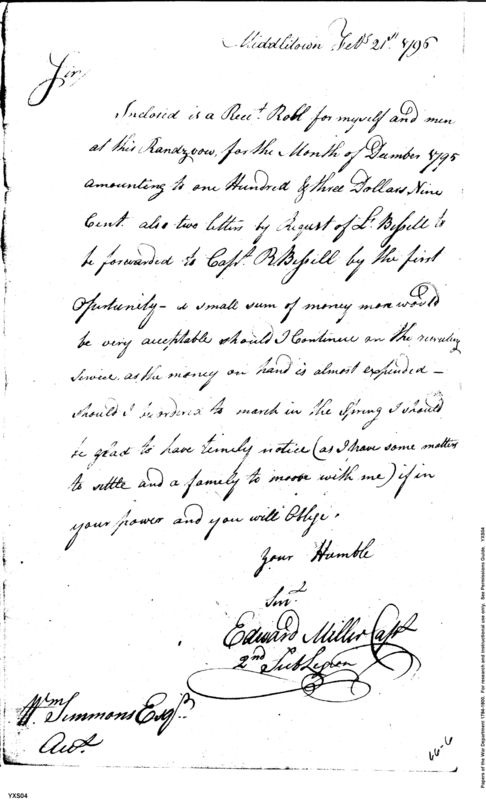 Middletown Feby 21st 1796
Sir
Inclosed is a Recet. Roll for myself and men
at this Randzvous, for the Month of Decmber 1795
amounting to one Hundred & three Dollars Nine
Cent. also two letters by Request of Lt. Bissell to
be forwarded to Capt. R Bissell by the first
Opertunity - a small sum of money more would
be very acceptable should I Continue on the recruiting
service. as the money on hand is almost expended -
should I be ordered to march in the Spring I should
be glad to have timely notice (as I have some matters
to settle and a famely to moove with me) if in
your power and you will Oblige.
Your Humble
Servt.
Edward Miller Capt
2nd Sub Legion
Wm Simmons Esqr.
Acct.
66-6
YXS04
Papers of the War Department 1784-1800. For research and instructional use only. See Permissions Guide. YXS04